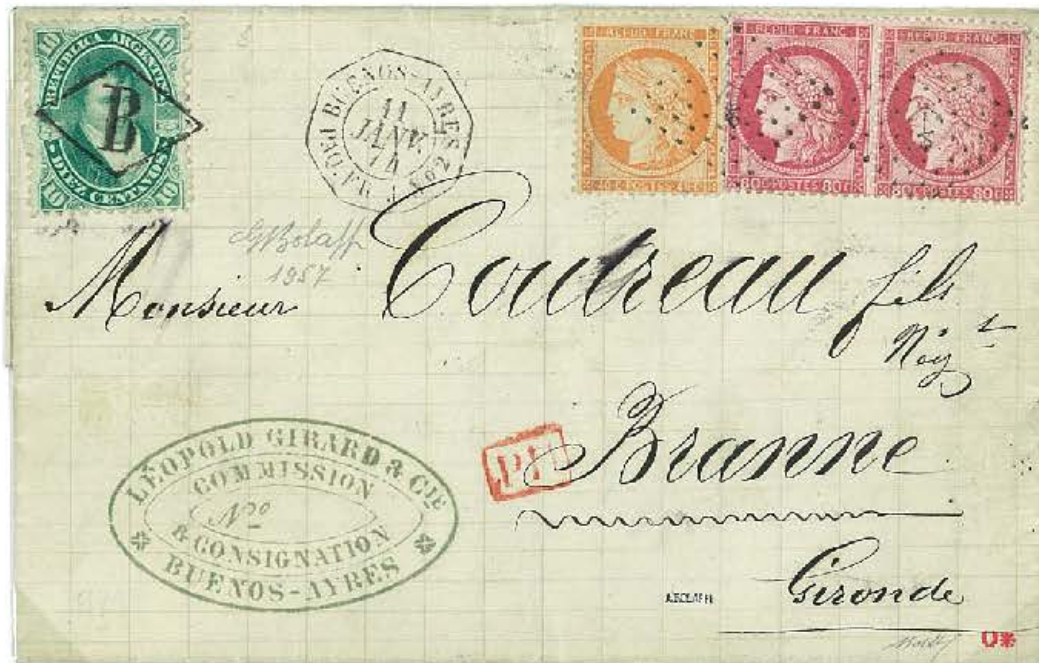 10 10
REPUBLICA ARGENTINA
B
10 10
DIEZ CENTAVOS
BUENOS-AYRES
11
JANV.
74
PAQ. FR. J Nº 2
REPUB. FRANC.
40 C. POSTES 40 C.
REPUB. FRANC.
80 C. POSTES 80 C.
REPUB. FRANC.
80 C. POSTES 80 C.
GBolaffi
1957
Monsieur Coutreau fils
Negt
Branne
Gironde
LÉOPOLD GIRARD & CIE
COMMISSION
Nº
& CONSIGNATION
BUENOS-AYRES
A.BOLAFFI